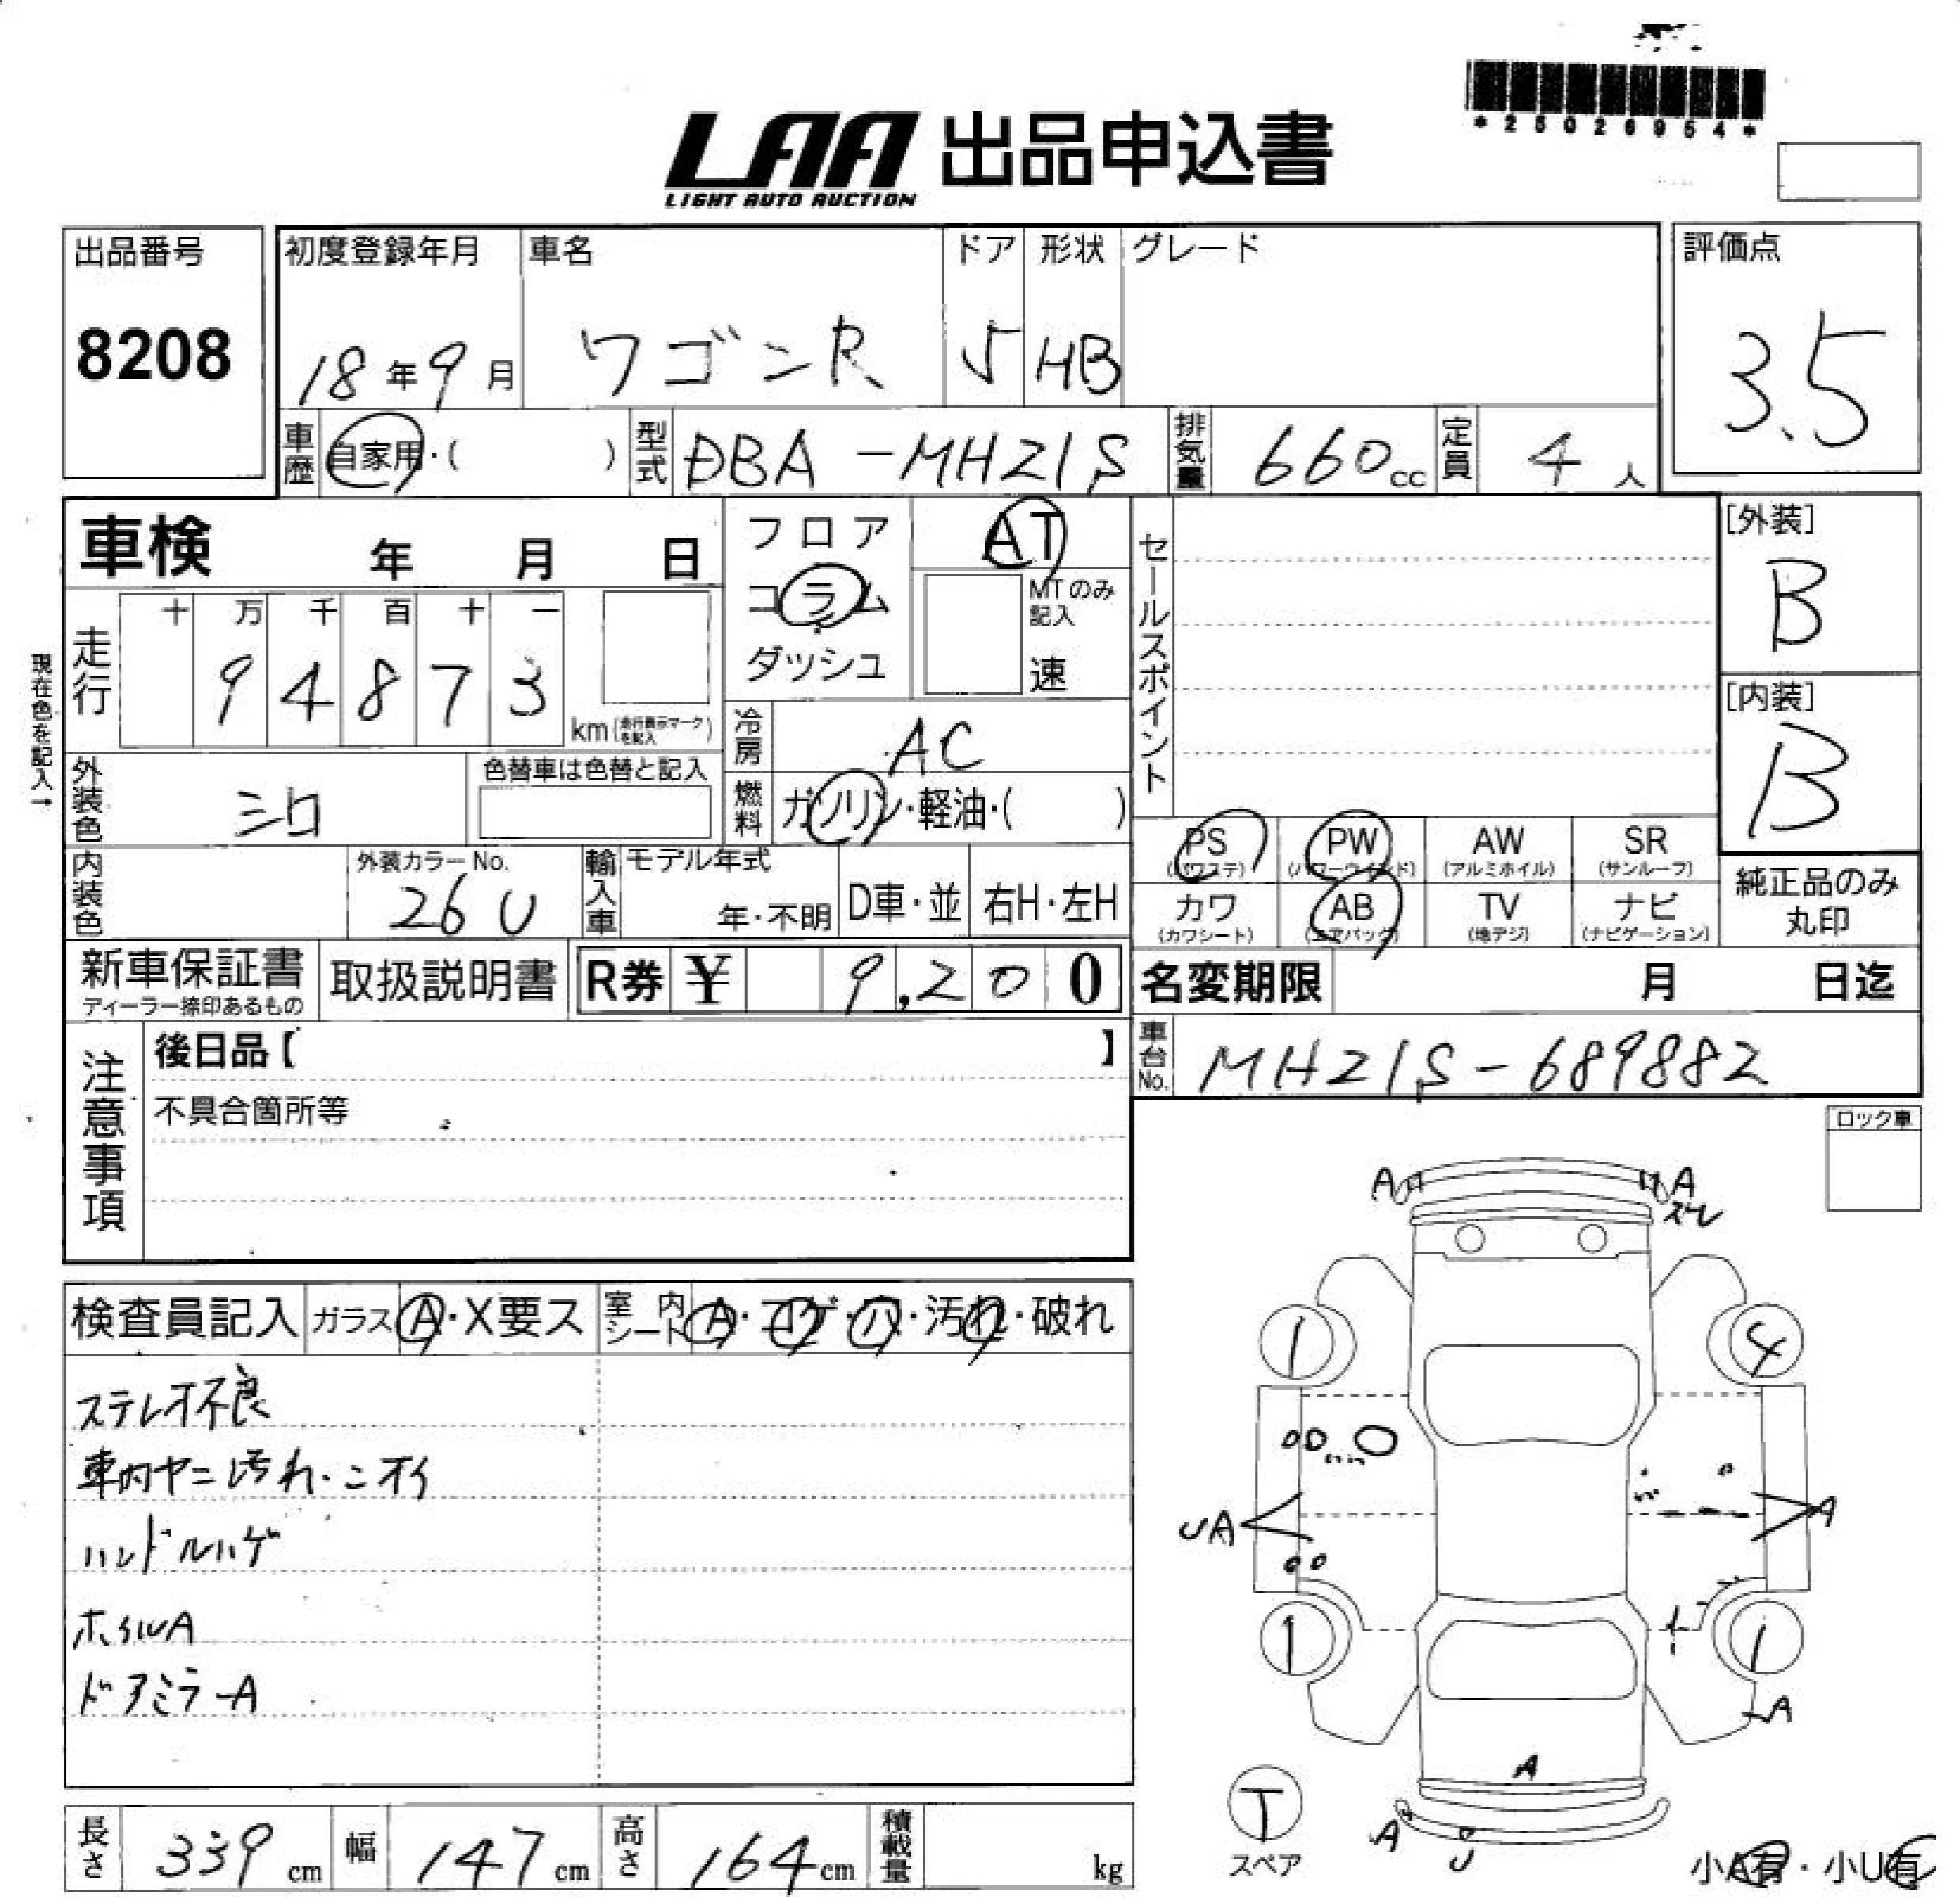 *25026954*
LAA 出品申込書
LIGHT AUTO AUCTION
出品番号
8208
初度登録年月
18年9月
車名
ワゴンR
ドア
5
形状
HB
グレード
評価点
3.5
車歴
自家用・( )
型式
DBA-MH21S
排気量
660cc
定員
4人
車検 年 月 日
フロア
コラム
ダッシュ
AT
MTのみ
記入
速
セールスポイント
[外装]
B
[内装]
B
現在色を記入→
走行
十 万 千 百 十 一
9 4 8 7 3
km(走行表示マークを記入)
冷房
AC
外装色
シロ
色替車は色替と記入
燃料
ガソリン・軽油・( )
内装色
外装カラーNo.
26U
輸入車
モデル年式
年・不明
D車・並
右H・左H
PS
(パワステ)
PW
(パワーウインド)
AW
(アルミホイル)
SR
(サンルーフ)
カワ
(カワシート)
AB
(エアバック)
TV
(地デジ)
ナビ
(ナビゲーション)
純正品のみ
丸印
新車保証書
ディーラー捺印あるもの
取扱説明書
R券 ¥ 9,200
名変期限 月 日迄
注意事項
後日品【 】
不具合箇所等
車台No.
MH21S-689882
ロック車
検査員記入
ガラス
A・X要ス
室内シート
A・コゲ・穴・汚れ・破れ
ステレオ不良
車内ヤニ汚れ・ニオイ
ハンドルハゲ
ホイルA
ドアミラーA
A
A
ズレ
1
4
UA
A
1
1
A
A
A
U
T
スペア
小A有・小U有
長さ
339cm
幅
147cm
高さ
164cm
積載量
kg